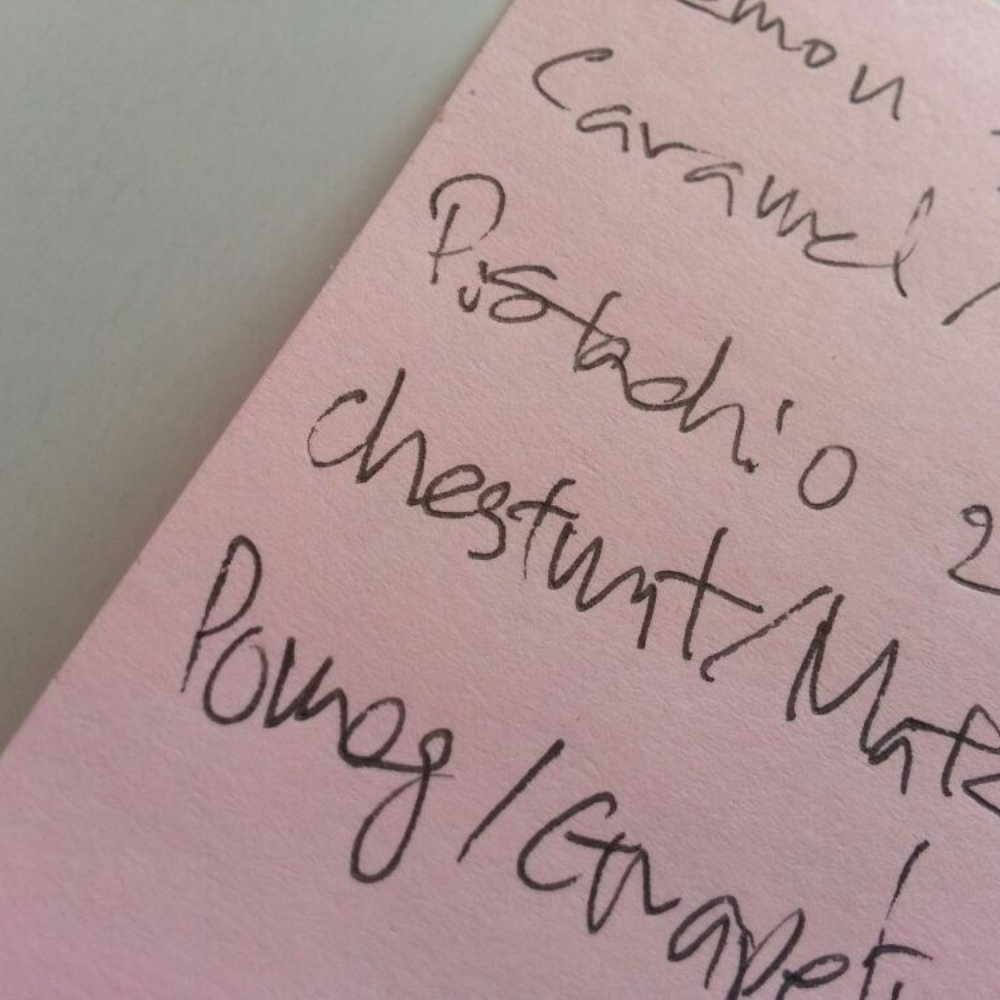 emon
Caramel /
Pistachio 2
Chestnut/Mat
Pomeg/Grapef